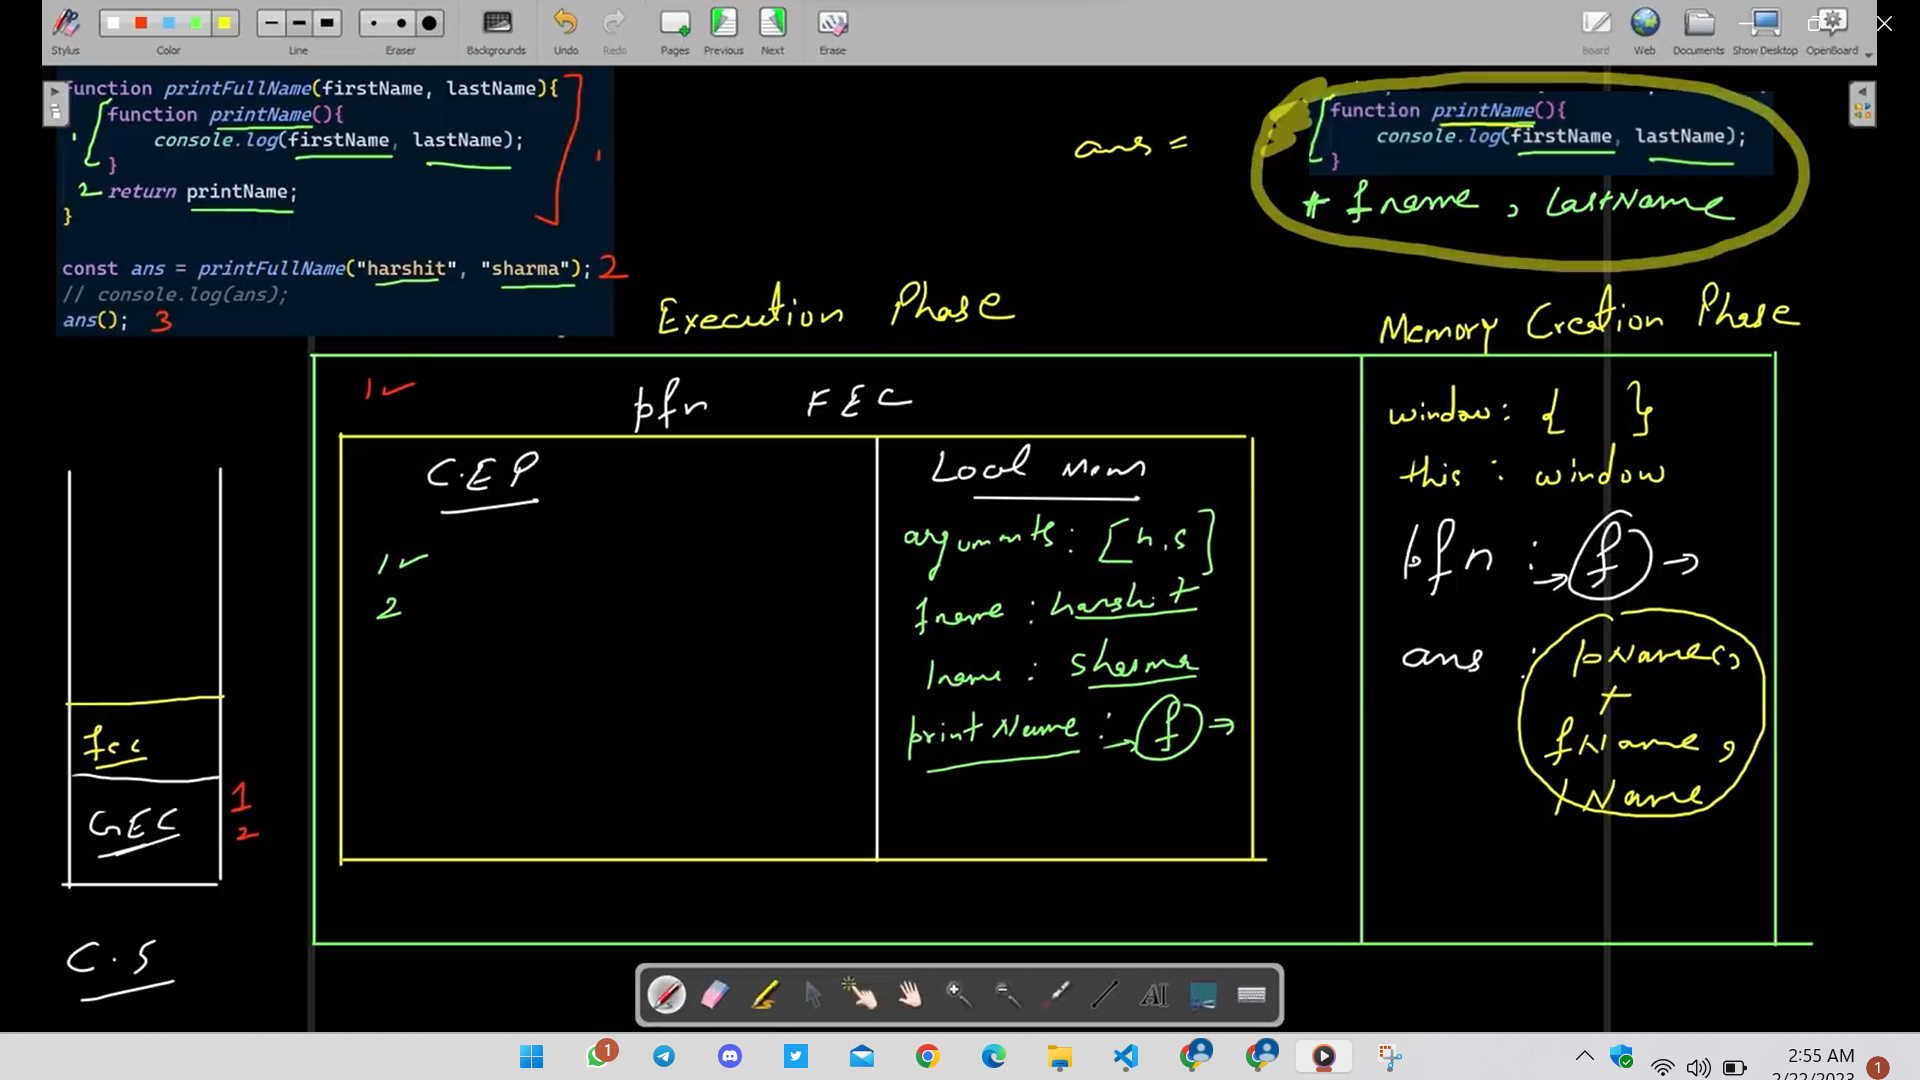 Stylus
Color
Line
Eraser
Backgrounds
Undo
Redo
Pages
Previous
Next
Erase
Board
Web
Documents
Show Desktop
OpenBoard
function printFullName(firstName, lastName){
1 function printName(){
console.log(firstName, lastName);
}
2 return printName;
}
1
const ans = printFullName("harshit", "sharma"); 2
// console.log(ans);
ans(); 3
ans =
function printName(){
console.log(firstName, lastName);
}
+ fname, lastName
Execution Phase
Memory Creation Phase
1 ✓
pfn FEC
C.E.P
1 ✓
2
Local Mem
arguments : [h,s]
fname : harshit
lname : sharma
printName : → f →
window : { }
this : window
pfn : → f →
ans : pName(,
+
fName,
lName
fec
GEC 1
2
C.S
AI
1
2:55 AM
2/22/2023
1